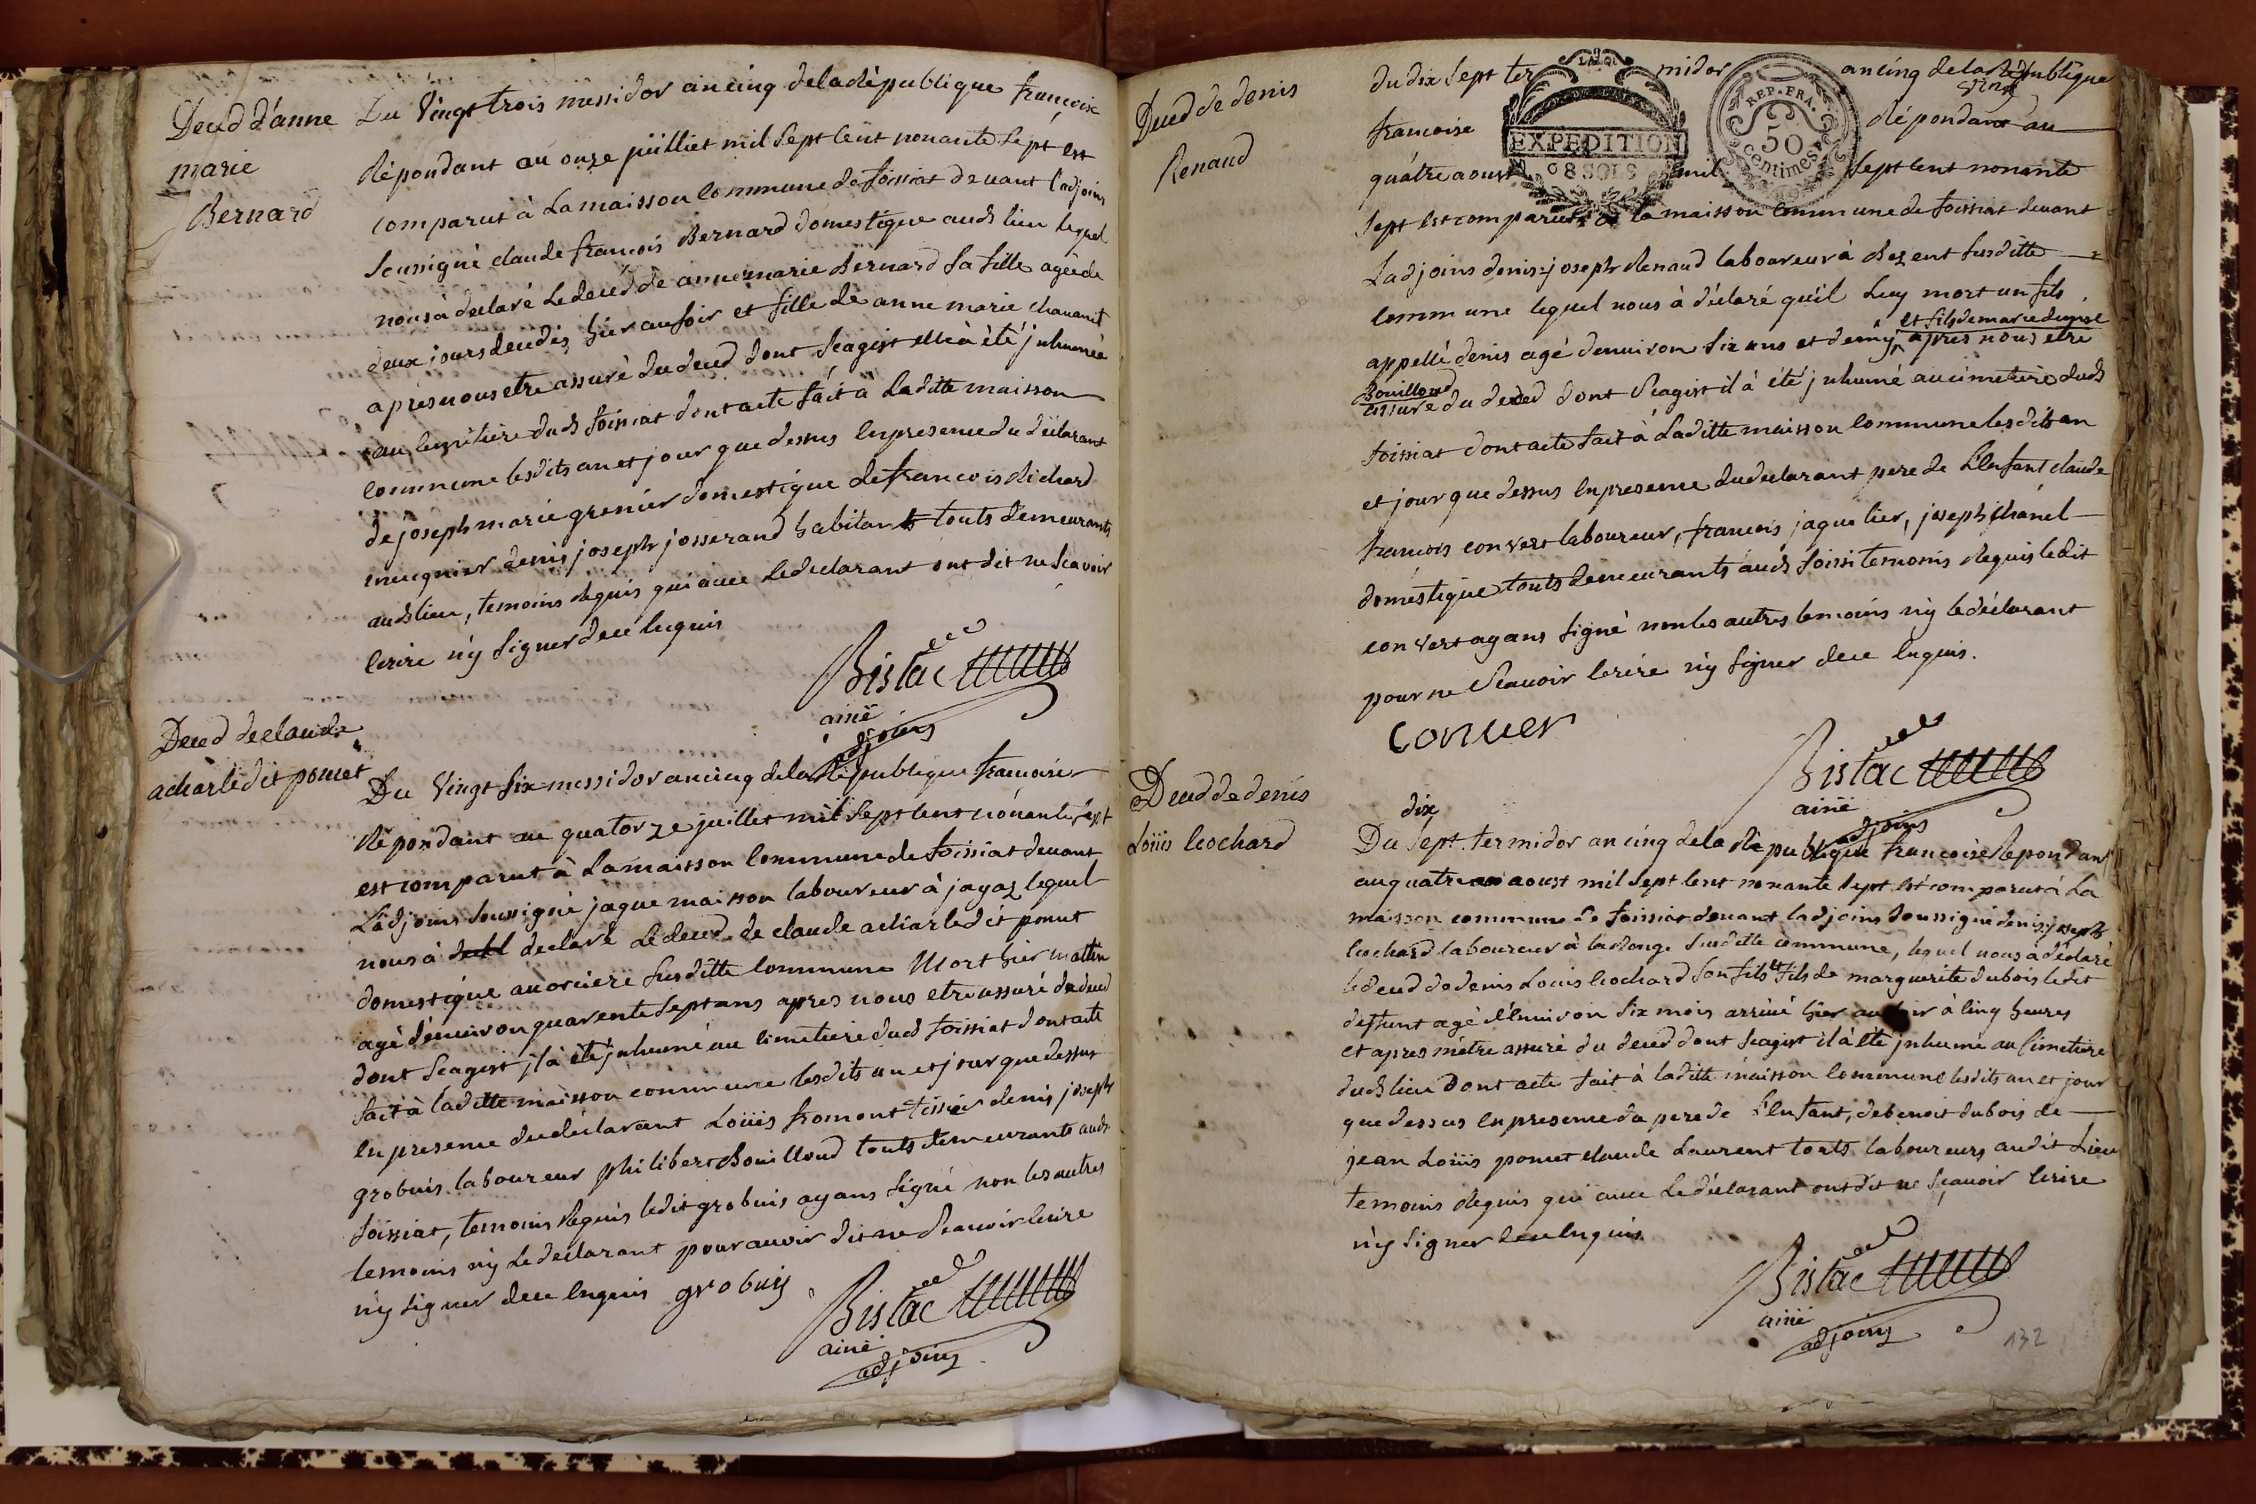 Deced d'anne
marie
Bernard
Du Vingt trois messidor an cinq de la République françoise
Répondant au onze juilliet mil sept cent nonante sept est
comparut à la maisson commune de foissiat devant l'adjoins
soussigné claude françois Bernard domestique auds lieu lequel
nous à déclaré le deced de anne marie Bernard sa fille agée de
deux jours decedés hier au soir et fille de anne marie chavanet
apres nous etre assuré du deced dont Seagist elle à été jnhumée
au cemitiere duds foissiat dont acte fait à laditte maisson
commune lesdits an et jour que dessus en presence du déclarant
de joseph marie grenier domestique de francois Richard
meugnier denis joseph josserand habitants touts demeurants
auds lieu, temoins Requis qui avec le declarant ont dit ne scavoir
ecrire n'y signer de ce enquis
Bistac
ainé
adjoins
Deced de claude
acharle dit pomet
Du Vingt six messidor an cinq de la République francoise
Répondant au quatorze juillet mil sept cent nonante sept
est comparut à la maisson commune de foissiat devant
L'adjoins soussigné jaque maisson laboureur à jayaz lequel
nous à declaré le deced de claude acharle dit pomet
domestique au orciere susditte commune Mort hier mattin
agé d'environ quarente sept ans apres nous etre assuré du deced
dont Seagist jl à été jnhumé au cimetiere duds foissiat dont acte
fait à laditte maisson commune lesdits an et jour que dessus
en presence du déclarant Loüis fromont tissier denis joseph
grobuis laboureur philibert Bouilloud touts demeurants auds
foissiat, temoins Requis ledit grobuis ayans signé non les autres
temoins n'y le declarant pour avoir dit ne Scavoir ecrire
n'y signer de ce enquis grobuis
Bistac
ainé
adjoins
Deced de denis
Renaud
du dix sept ter midor an cinq de la République
francoise Répondant au
quatre aoust mil sept cent nonante
EXPEDITION
8 SOLS
REP. FRA.
50
centimes
sept est comparut à la maisson commune de foissiat devant
Ladjoins denis joseph Renaud laboureur à Bezent susditte
commune lequel nous à déclaré qu'il luy mort un fils
appellé denis agé d'environ six ans et demy, et fils de marie denise
Bouilloud apres nous etre
assuré du deced dont Seagist il à été jnhumé au cimetiere duds
foissiat dont acte fait à laditte maisson commune lesdits an
et jour que dessus en presence du declarant pere de l'enfant claude
francois convert laboureur, francois jaquetier, joseph chanel
domestique touts demeurants auds foissi temoins Requis ledit
convert ayans signé non les autres temoins n'y le déclarant
pour ne Scavoir ecrire n'y signer de ce enquis.
conver
Bistac
ainé
adjoins
Deced de denis
Loüis cochard
dix
Du Sept termidor an cinq de la République francoise Repondant
au quatre aoust mil sept cent nonante sept est comparut à La
maisson commune de foissiat devant ladjoins soussigné denis joseph
cochard laboureur à susditte commune, lequel nous à déclaré
le deced de denis Louis cochard son fils et fils de marguerite dubois ledit
deffunt agé d'environ six mois arrivé hier au soir à cinq heures
et apres m'etre assuré du deced dont Seagist il à été jnhumé au cimetiere
duds lieu dont acte fait à laditte maisson commune lesdits an et jour
que dessus en presence du pere de l'enfant, de benoit dubois de
jean Loüis pomet claude Laurent touts laboureurs audit Lieu
temoins Requis qui avec le déclarant ont dit ne sçavoir ecrire
n'y signer de ce enquis
Bistac
ainé
adjoins
132